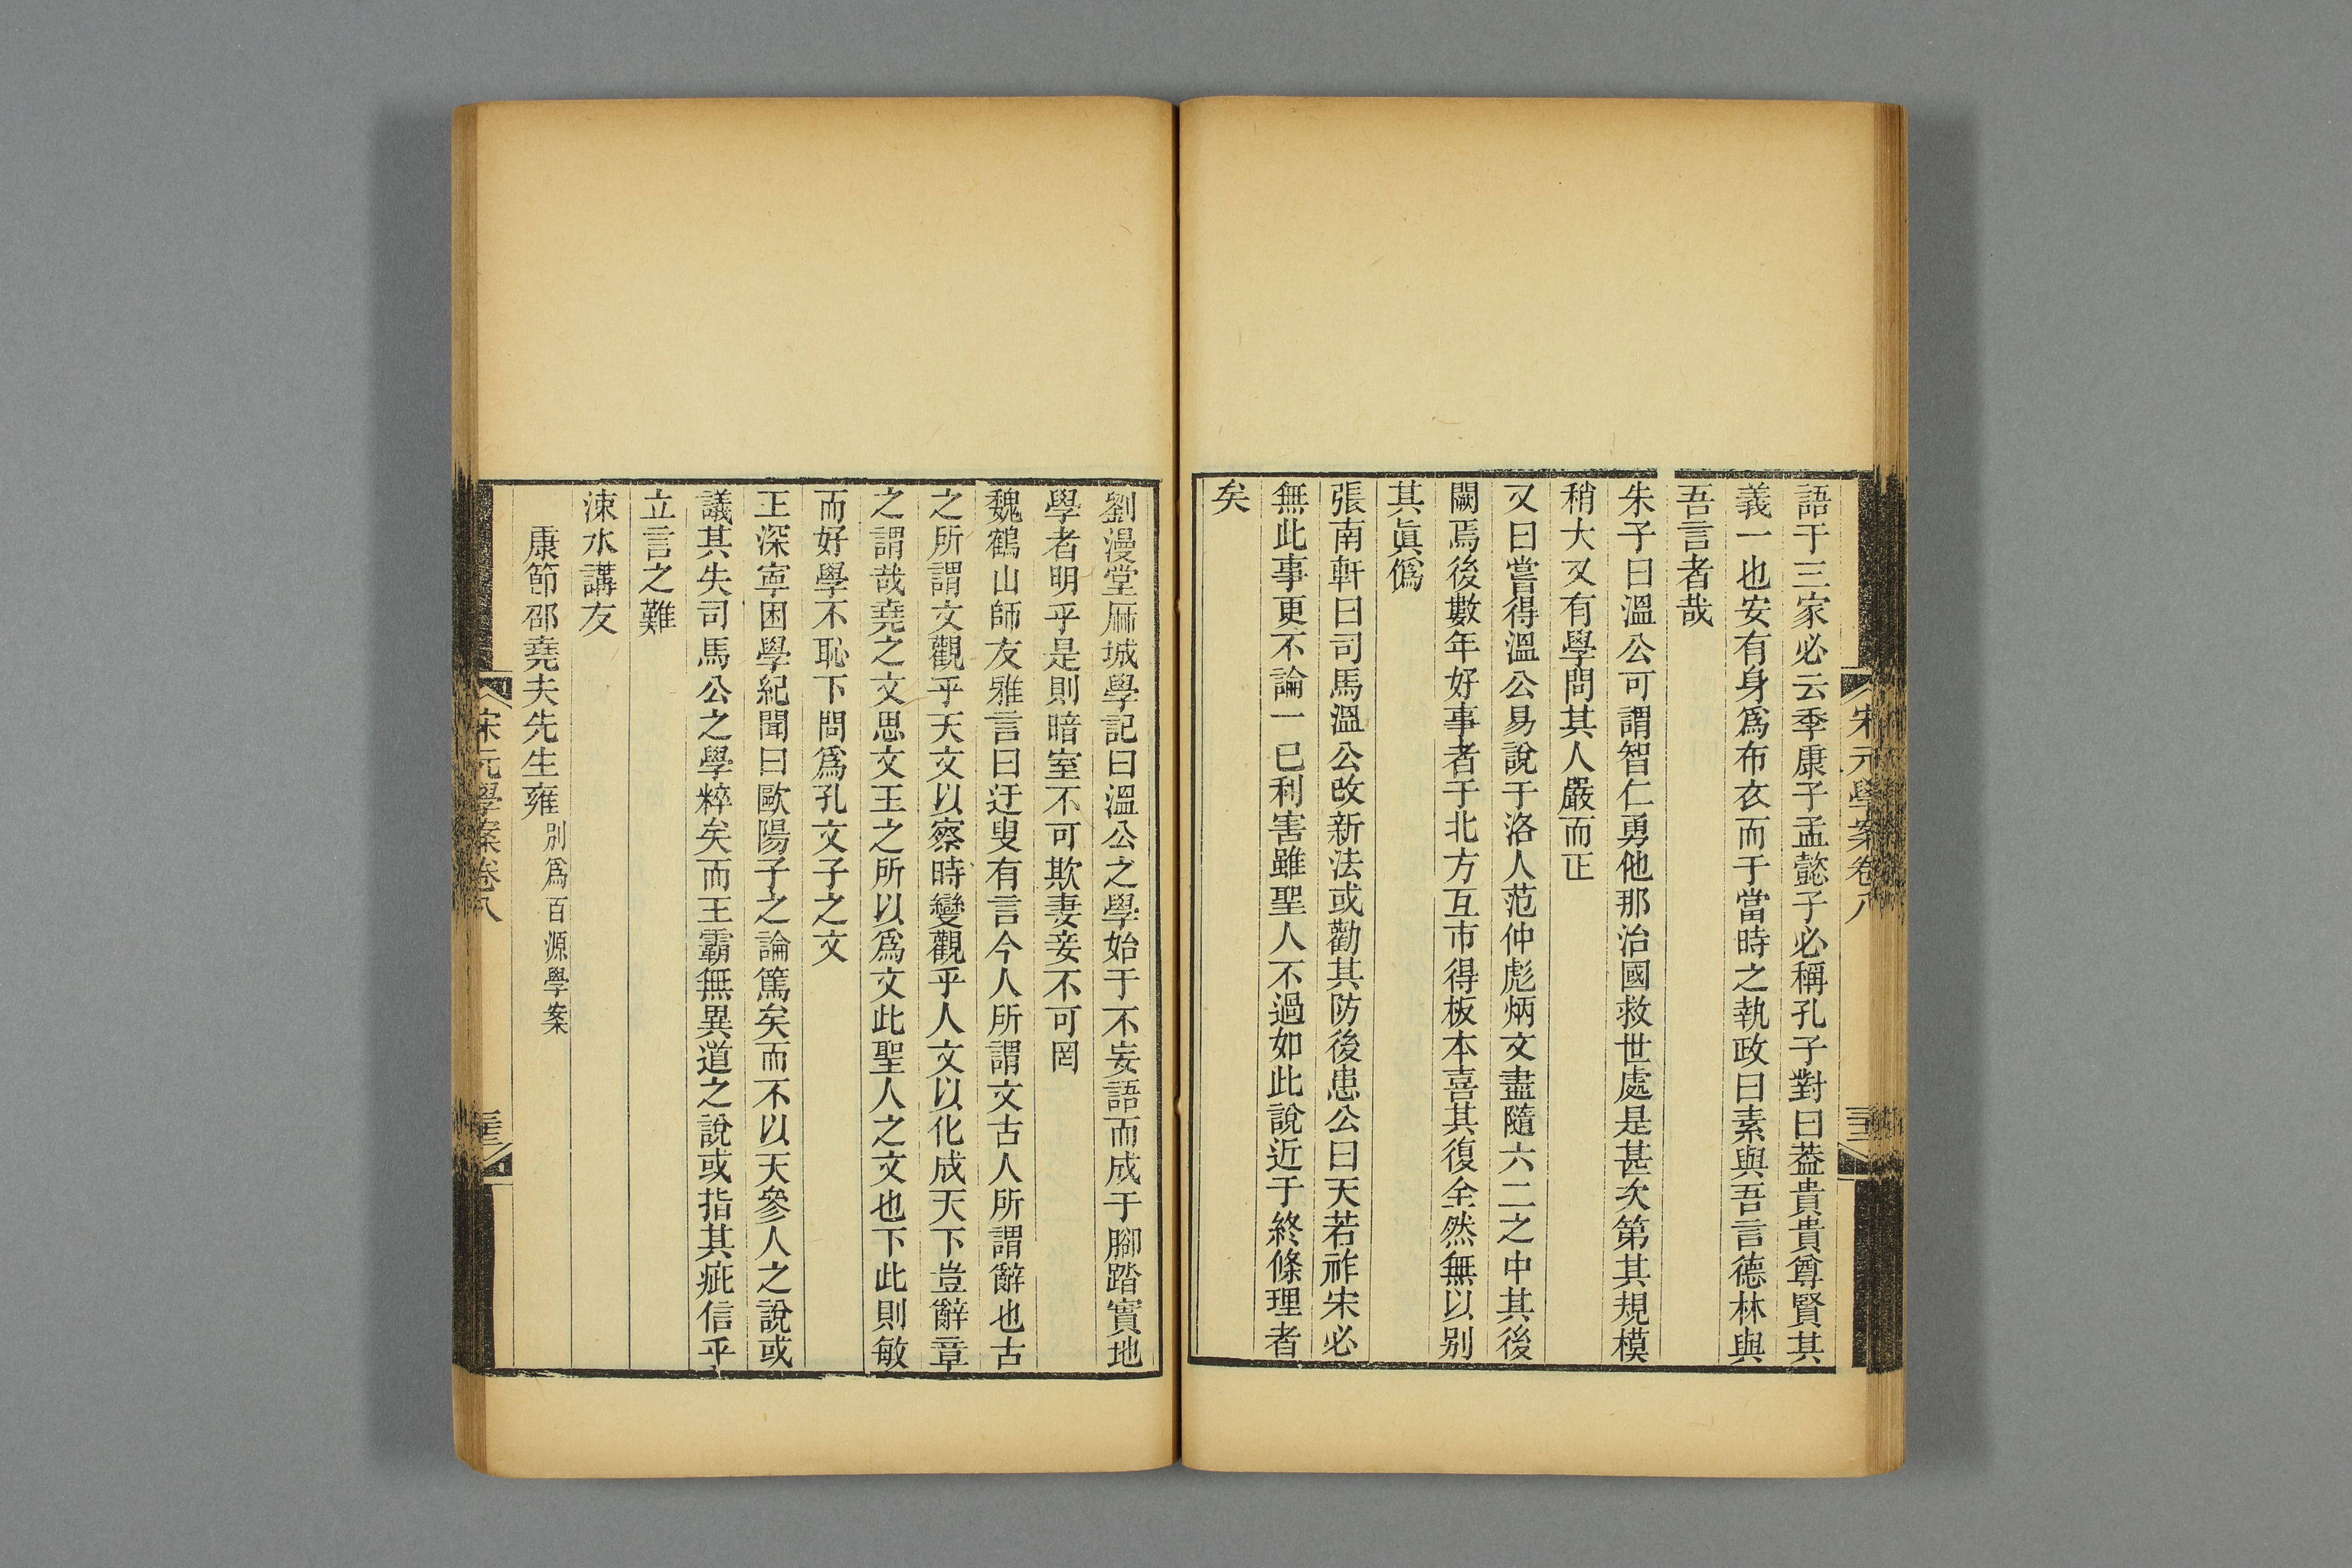 宋元學案卷八
語于三家必云季康子孟懿子必稱孔子對曰葢貴貴尊賢其
義一也安有身爲布衣而于當時之執政曰素與吾言德林與
吾言者哉
朱子曰溫公可謂智仁勇他那治國救世處是甚次第其規模
稍大又有學問其人嚴而正
又曰嘗得溫公易說于洛人范仲彪炳文盡隨六二之中其後
闕焉後數年好事者于北方互市得板本喜其復全然無以别
其眞僞
張南軒曰司馬溫公改新法或勸其防後患公曰天若祚宋必
無此事更不論一已利害雖聖人不過如此說近于終條理者
矣
劉漫堂麻城學記曰溫公之學始于不妄語而成于腳踏實地
學者明乎是則暗室不可欺妻妾不可罔
魏鶴山師友雅言曰迂叟有言今人所謂文古人所謂辭也古
之所謂文觀乎天文以察時變觀乎人文以化成天下豈辭章
之謂哉堯之文思文王之所以爲文此聖人之文也下此則敏
而好學不恥下問爲孔文子之文
王深寧困學紀聞曰歐陽子之論篤矣而不以天參人之說或
議其失司馬公之學粹矣而王霸無異道之說或指其疵信乎
立言之難
涑水講友
康節邵堯夫先生雍别爲百源學案
宋元學案卷八